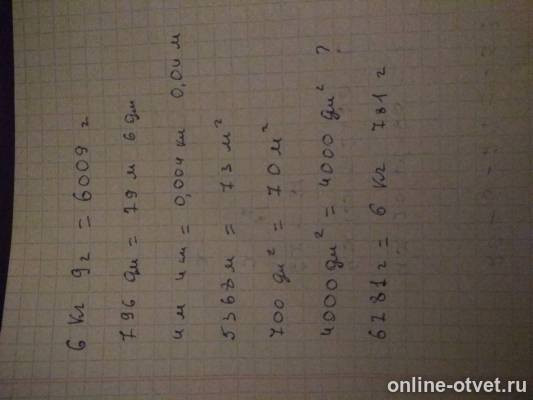 6 кг 9 г = 6009 г
796 дм = 79 м 6 дм
4 м 4 см = 0,004 км 0,04 м
5368 м = 73 м²
700 дм² = 70 м²
4000 дм² = 4000 дм² ?
6781 г = 6 кг 781 г
online-otvet.ru